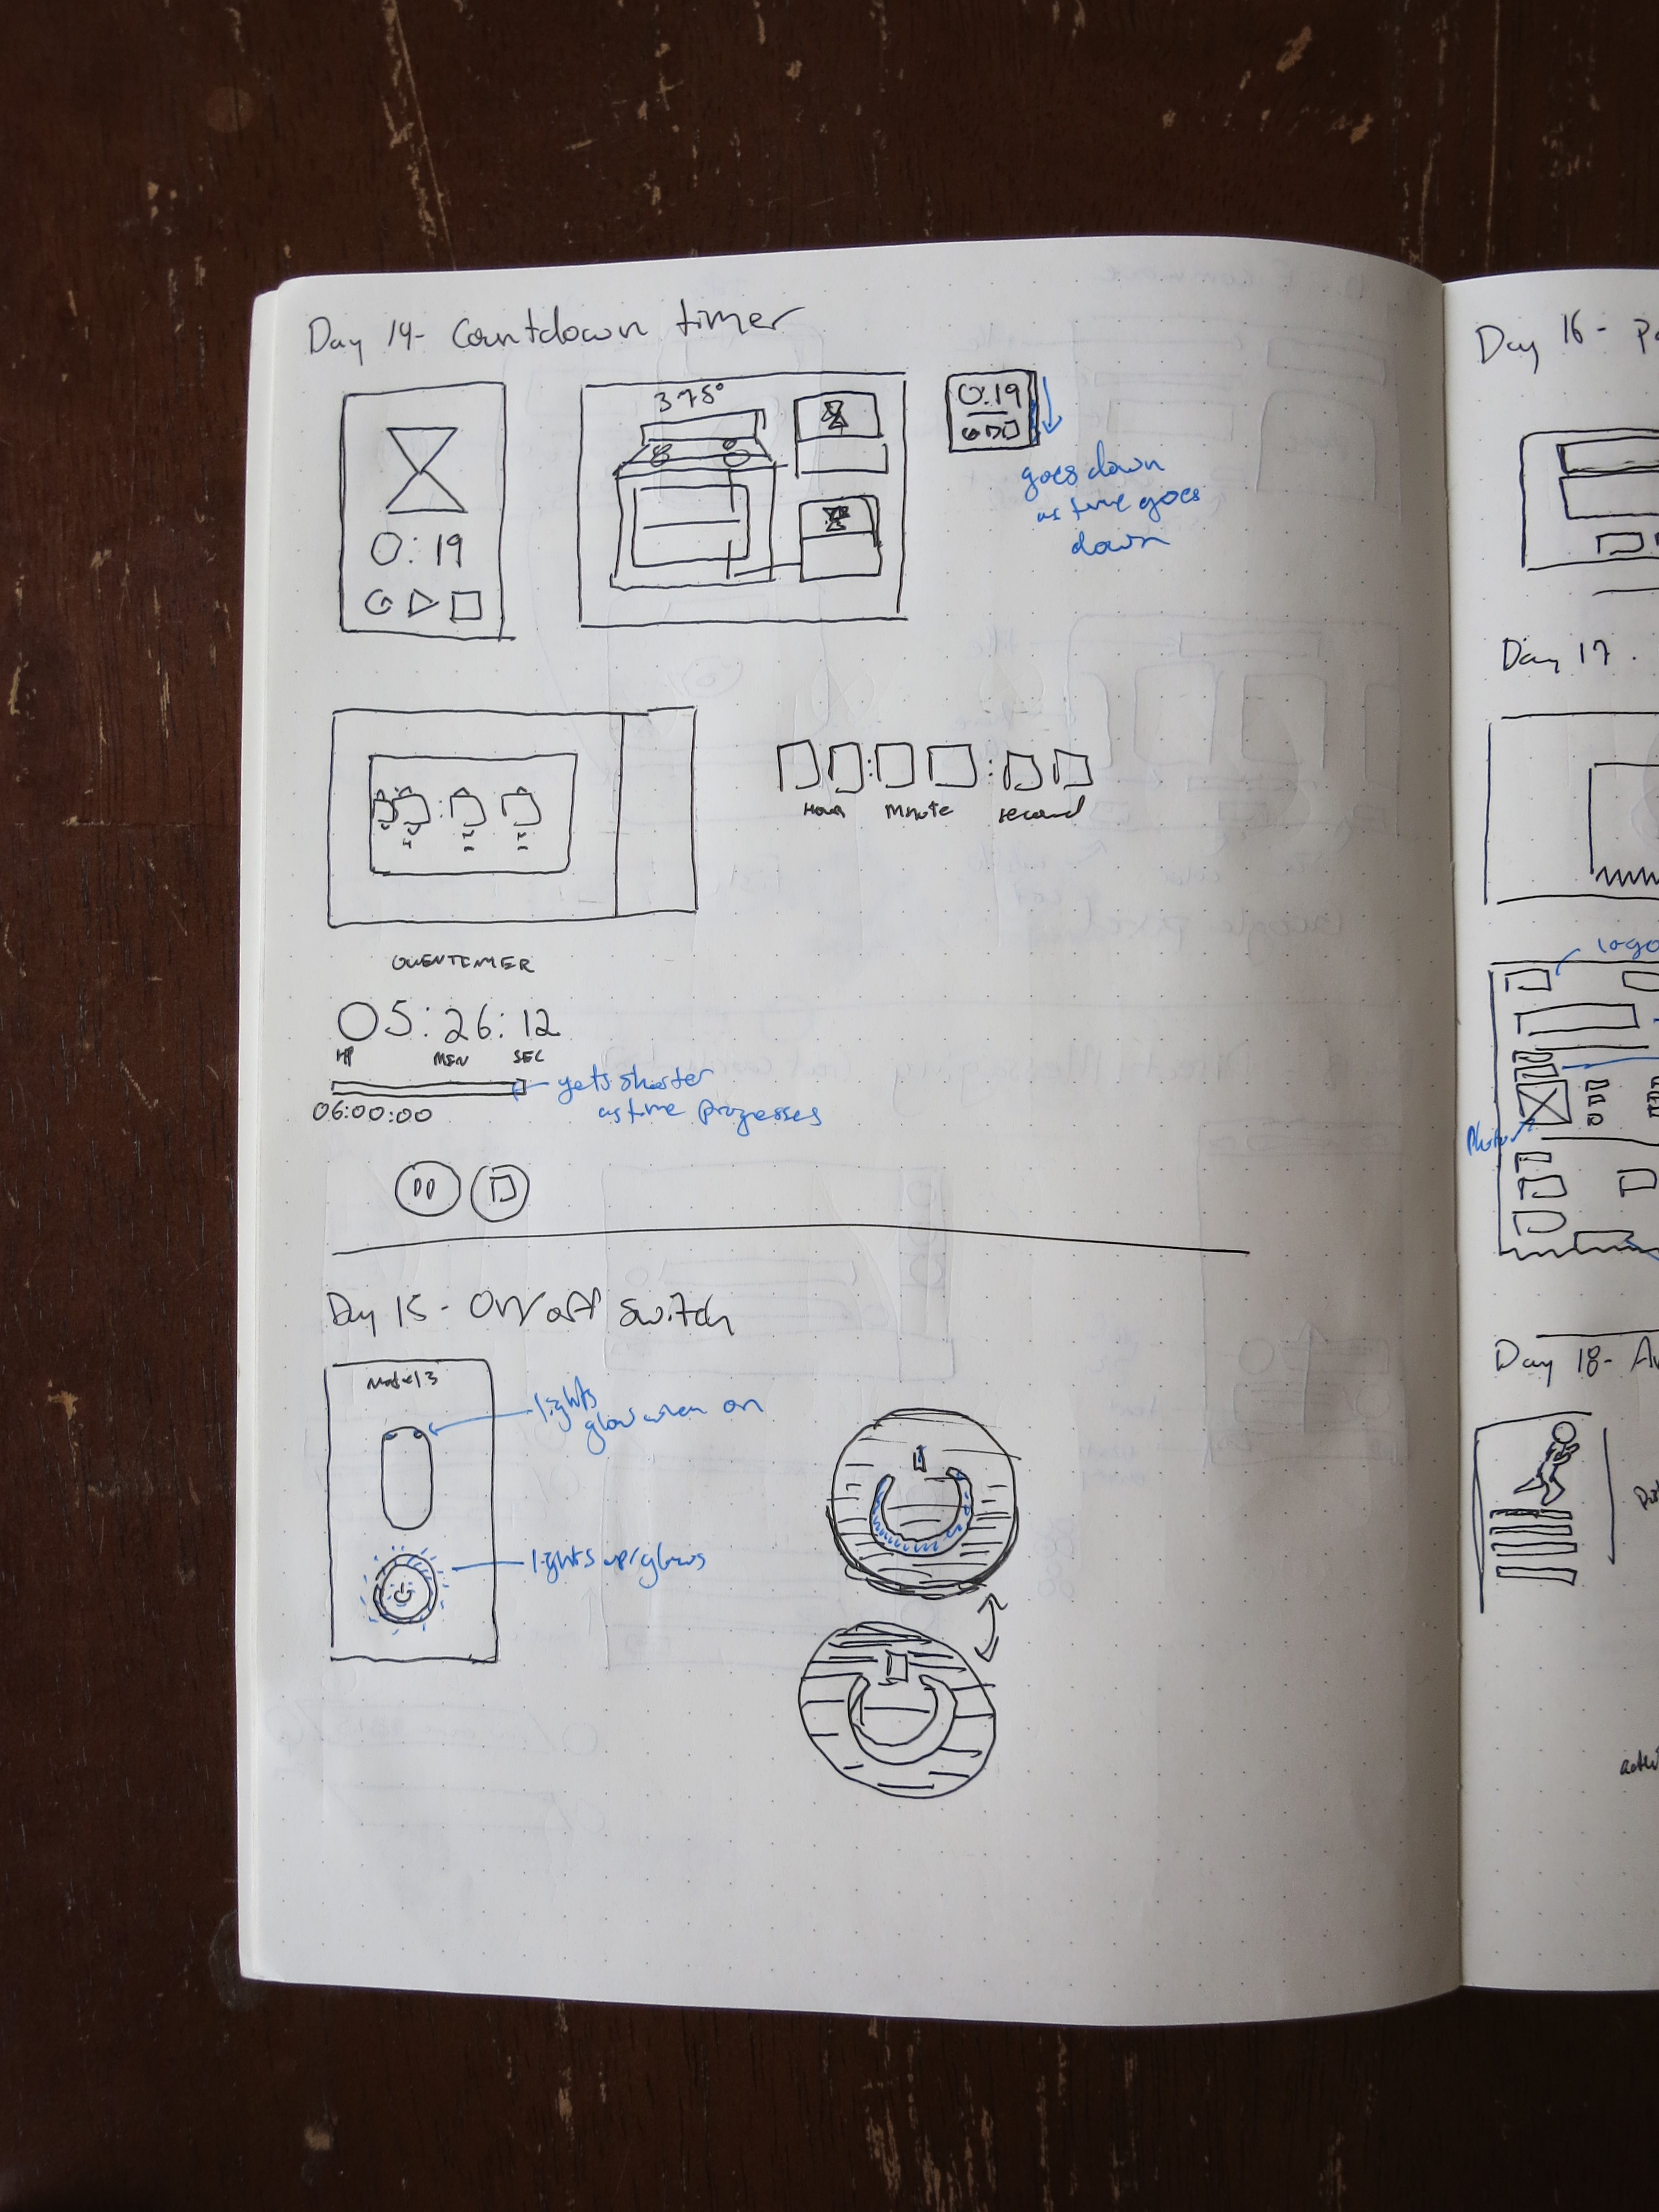 Day 14- Countdown timer
375°
0:19
0:19
goes down
as time goes
down
Hour Minute second
OVENTIMER
05:26:12
HR MIN SEC
gets shorter
as time progresses
06:00:00
Day 15- On/off switch
Model 3
lights
glow when on
lights up/glows
Day 16-
Day 17.
logo
Photo
Day 18-